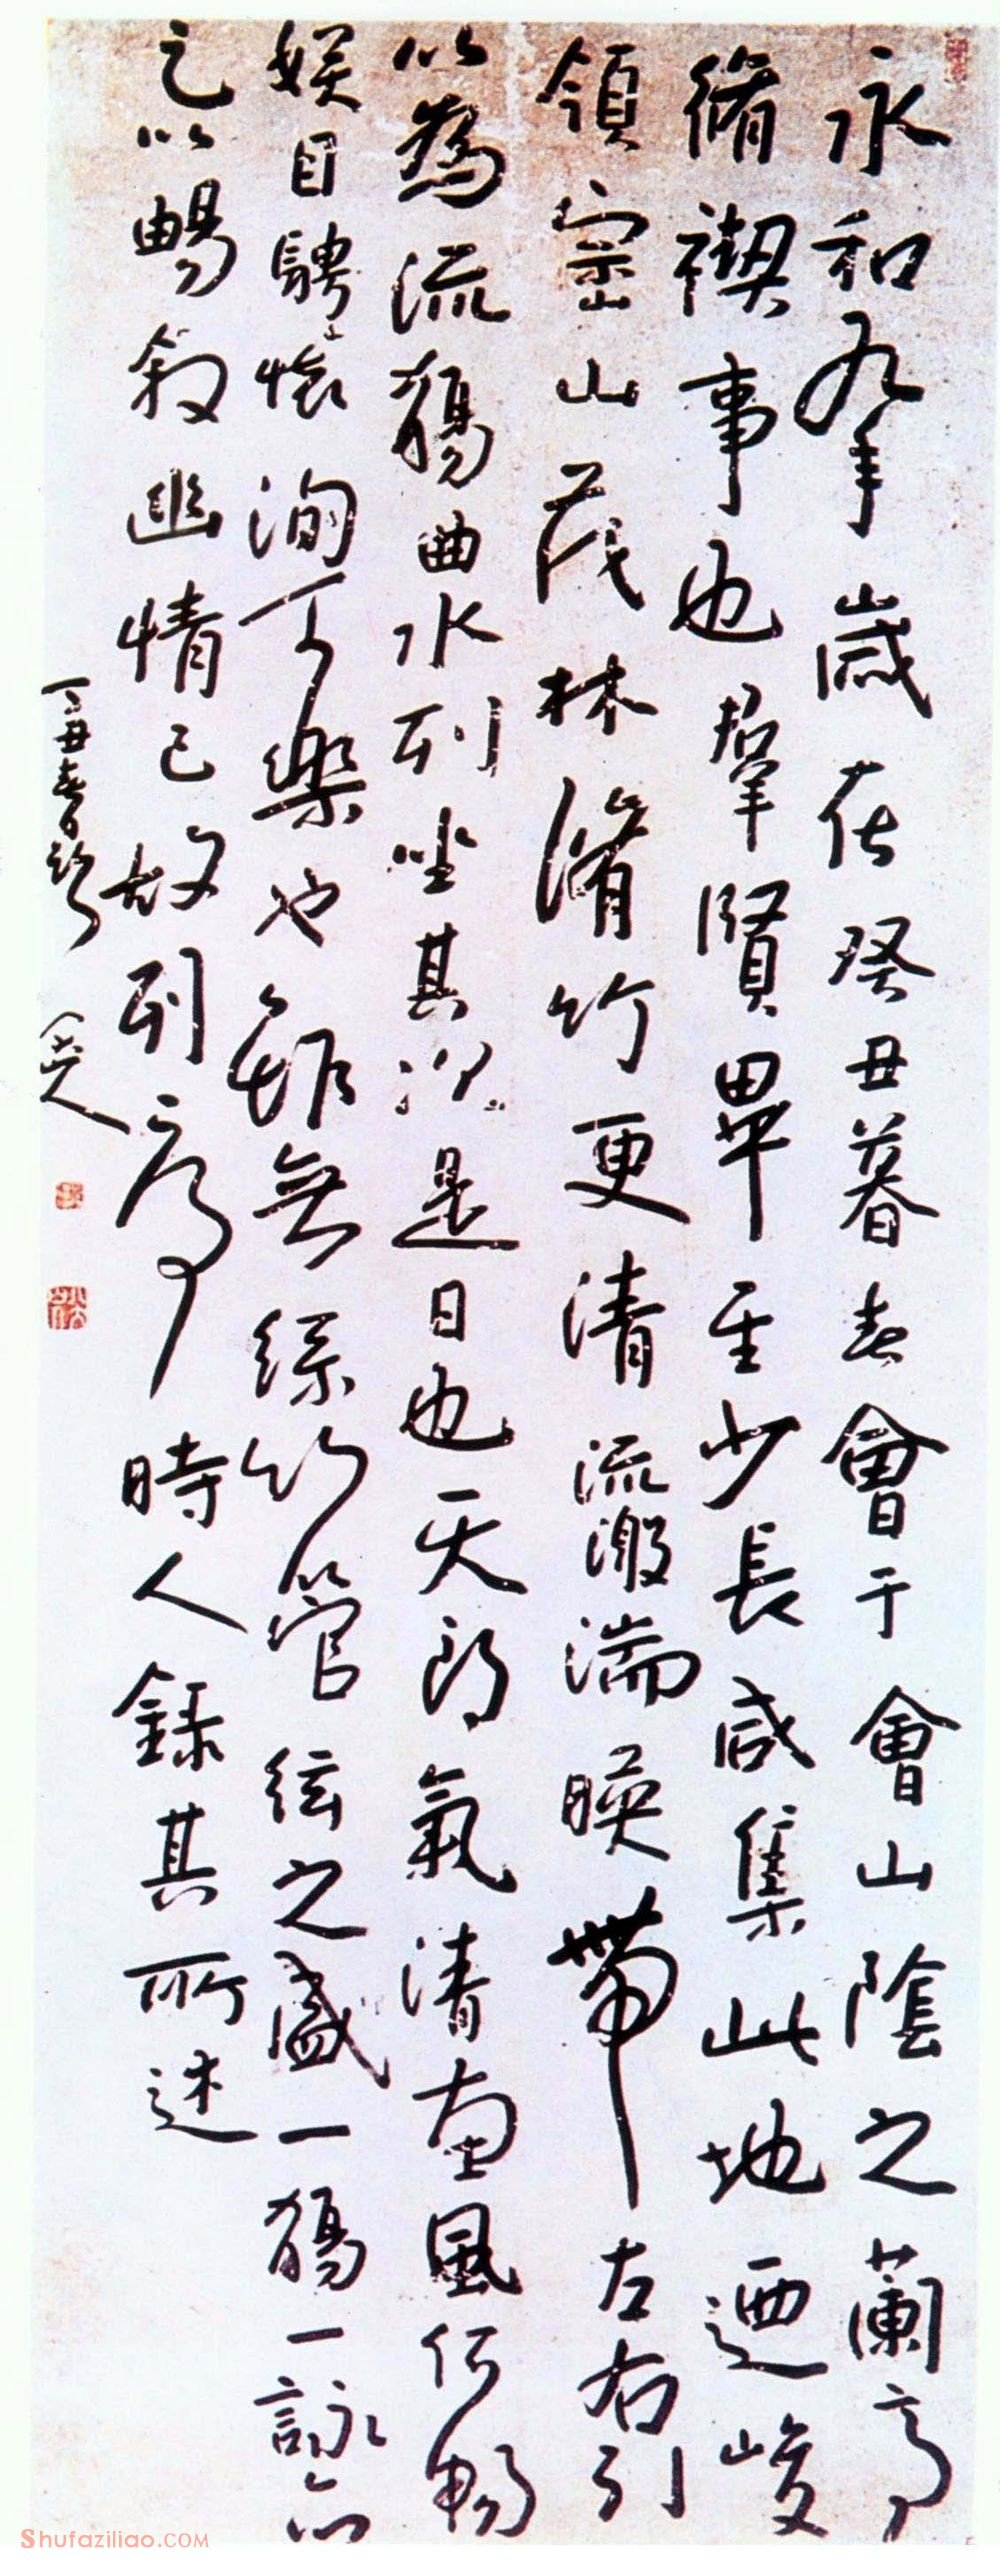 永和九年歲在癸丑暮春會于會山陰之蘭亭
脩禊事也羣賢畢至少長咸集此地迺峻
領崇山茂林脩竹更清流激湍暎帶左右引
以為流觴曲水列坐其次是日也天朗氣清惠風何暢
娛目騁懷洵可樂也雖無絲竹管絃之盛一觴一詠亦
足以暢敘幽情已故列序時人錄其所述
丁丑春日題
八大山人
Shufaziliao.COM